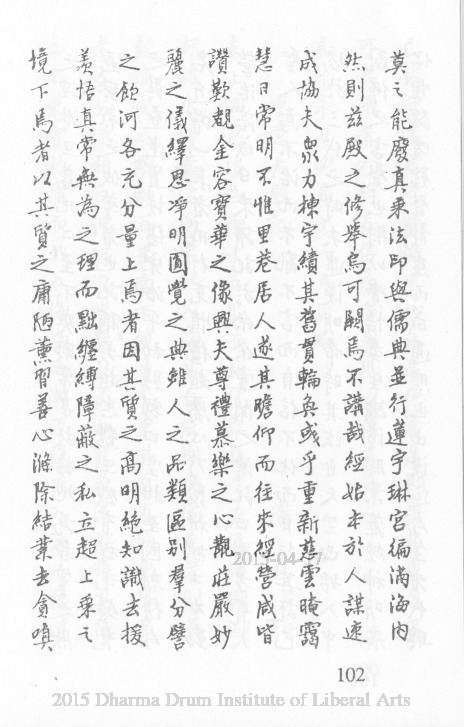 莫之能廢真乘法印與儒典並行蓮宇琳宮徧滿海內
然則茲殿之修舉烏可闕焉不講哉經始本於人謀速
成協夫眾力棟宇績其舊貫輪奐彧乎重新慈雲晻靄
慧日常明不惟里巷居人遂其瞻仰而往來經營咸皆
讚歎覩金容寶華之像興夫尊禮慕樂之心觀莊嚴妙
麗之儀繹思淨明圓覺之典雖人之品類區別羣分譬
之飲河各充分量上焉者因其質之高明絕知識去援
羨悟真常無為之理而黜纏縛障蔽之私立超上乘之
境下焉者以其質之庸陋薰習善心滌除結業去貪嗔
2015-04-17
102
2015 Dharma Drum Institute of Liberal Arts